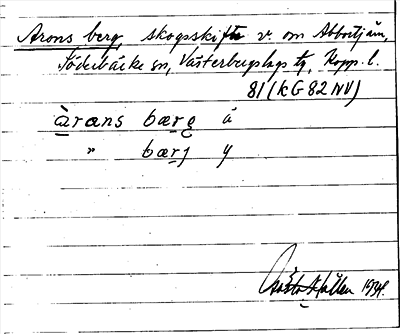 Arons berg, skogsskifte v. om Abbortjärn,
Söderbärke sn, Västerbergslags tg, Kopp. l.
81 (kG 82 NV)
àræns bærg å
" bærj y
1934.